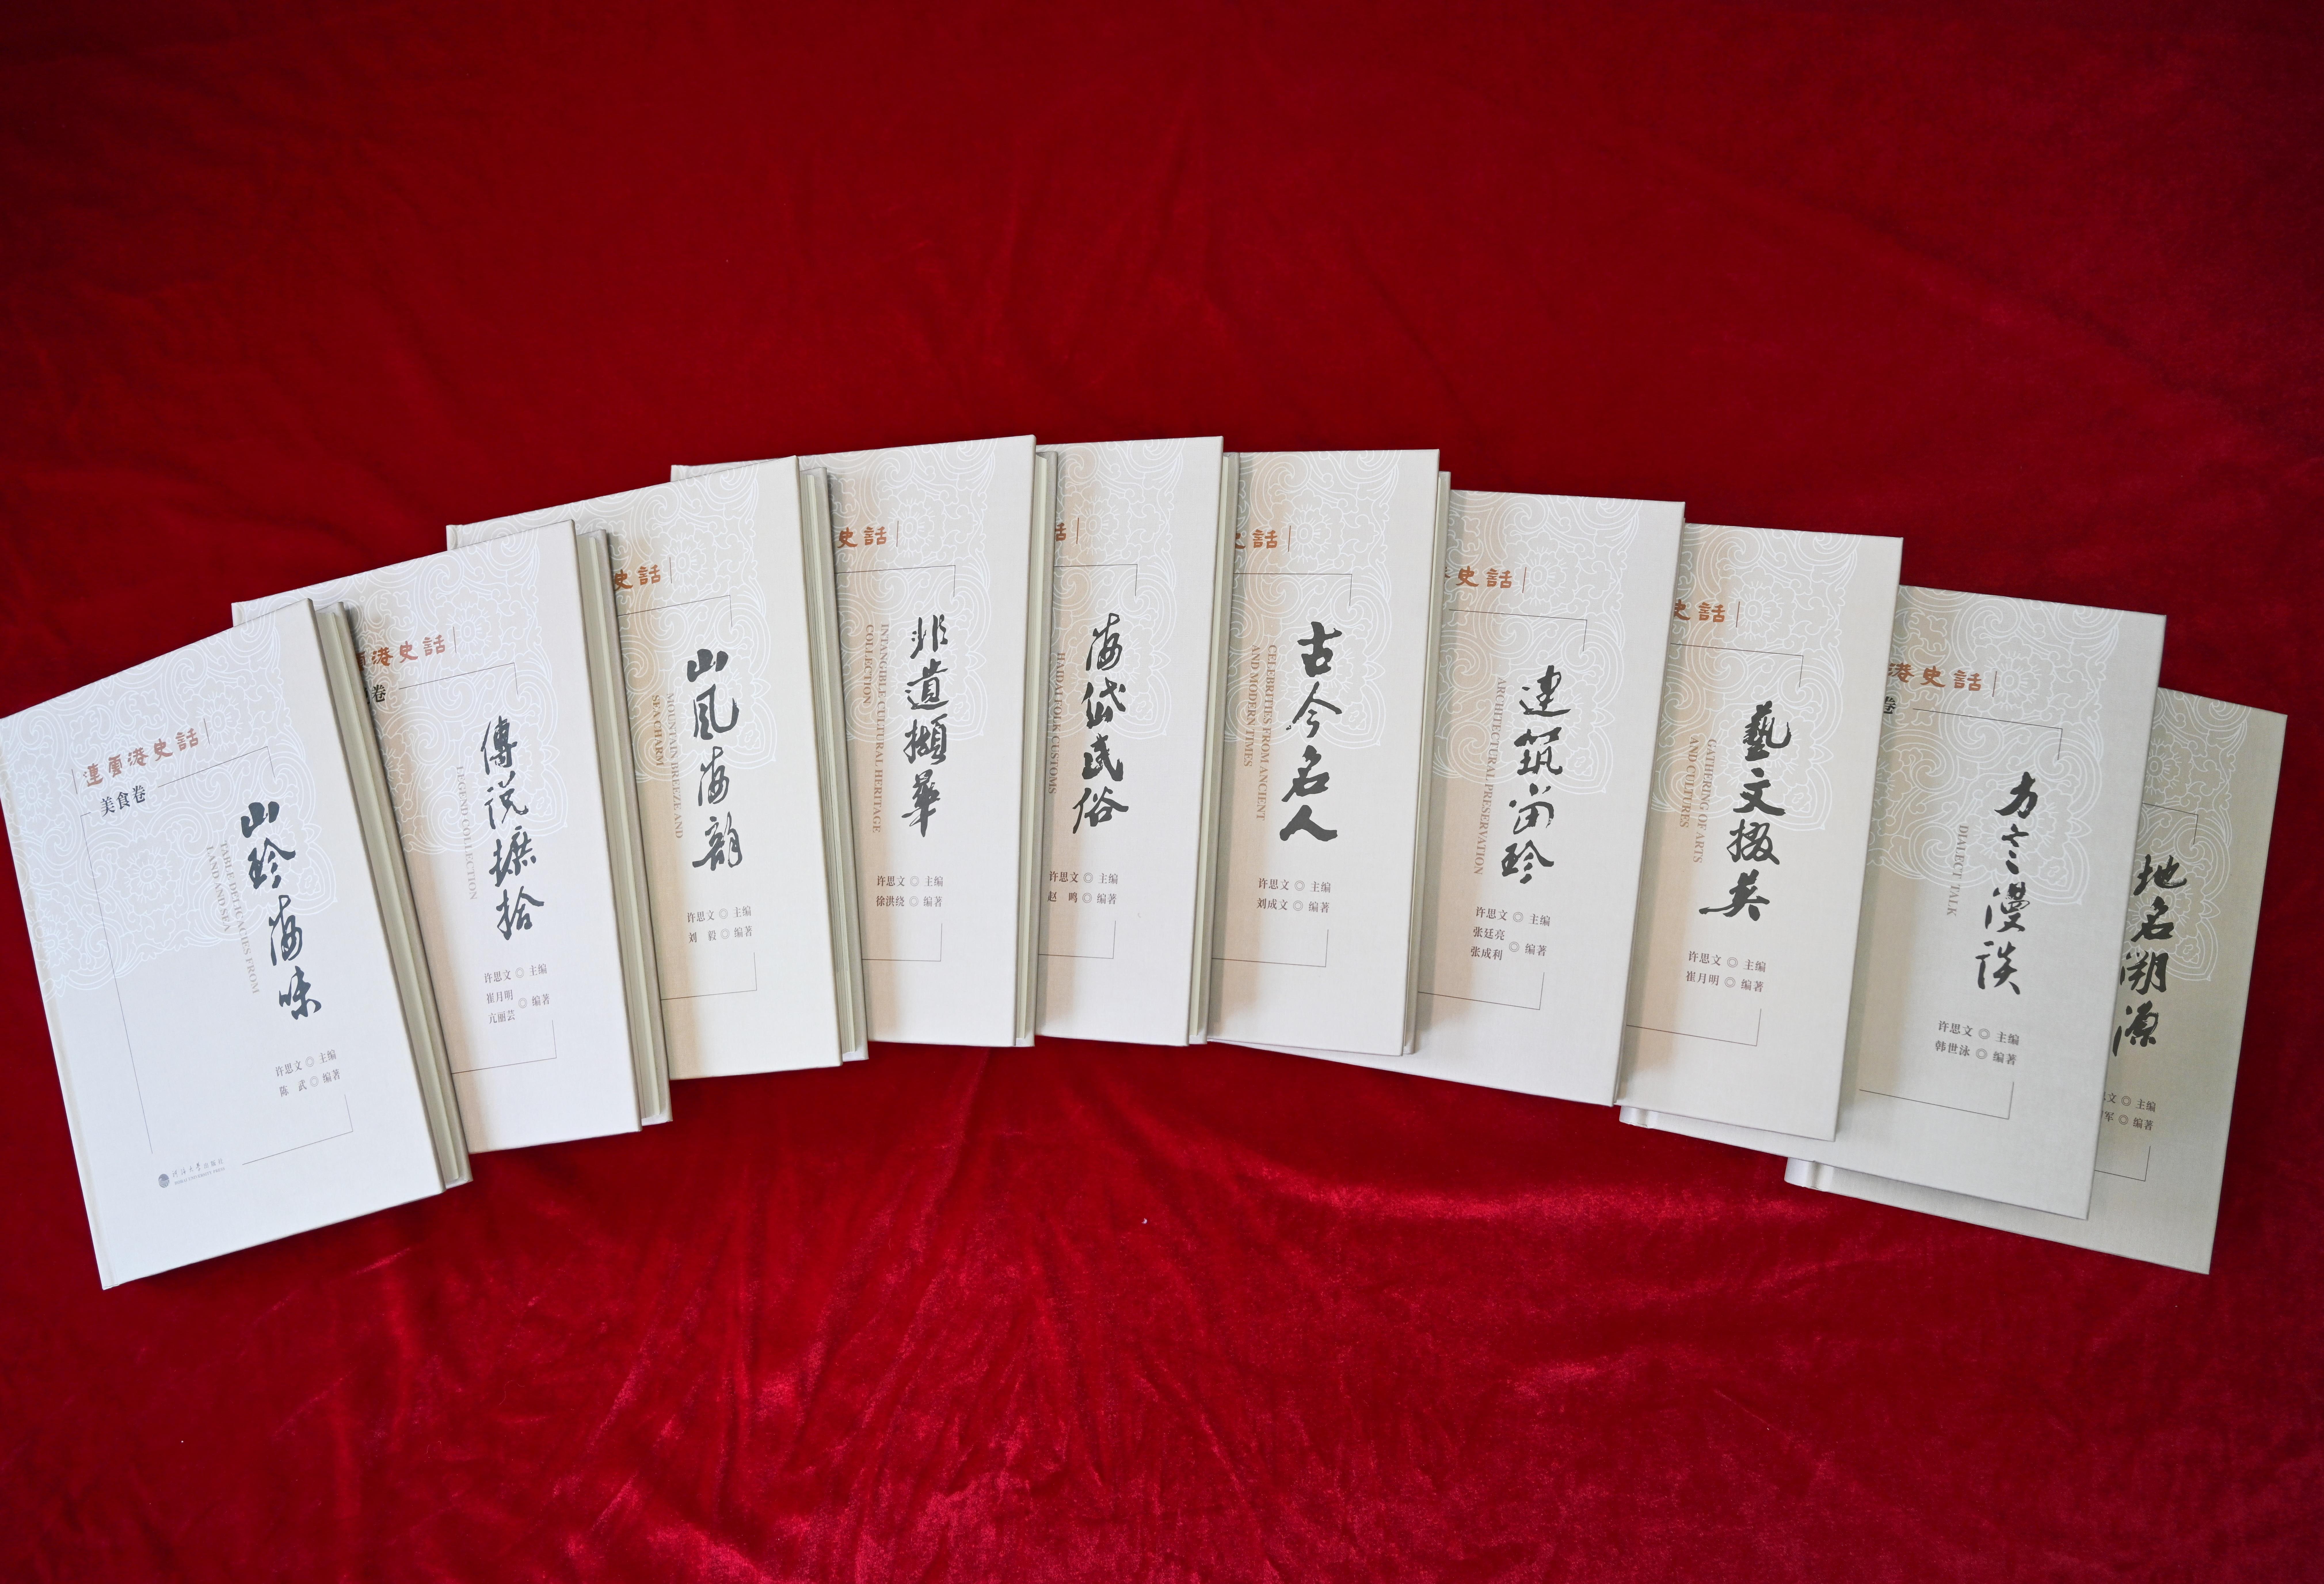 連雲港史話
美食卷
山珍海味
TABLE DELICACIES FROM
LAND AND SEA
许思文◎主编
陈 武◎编著
河海大学出版社
HOHAI UNIVERSITY PRESS
港史話
卷
傳説摭拾
LEGEND COLLECTION
许思文◎主编
崔月明
亢丽芸
◎编著
史話
山风海韵
MOUNTAIN BREEZE AND
SEA CHARM
许思文◎主编
刘 毅◎编著
史話
非遺擷華
INTANGIBLE CULTURAL HERITAGE
COLLECTION
许思文◎主编
徐洪绕◎编著
話
海岱民俗
HAIDAI FOLK CUSTOMS
许思文◎主编
赵 鸣◎编著
史話
古今名人
CELEBRITIES FROM ANCIENT
AND MODERN TIMES
许思文◎主编
刘成文◎编著
史話
建筑留珍
ARCHITECTURAL PRESERVATION
许思文◎主编
张廷亮
张成利
◎编著
史話
藝文掇英
GATHERING OF ARTS
AND CULTURES
许思文◎主编
崔月明◎编著
港史話
卷
方言漫谈
DIALECT TALK
许思文◎主编
韩世泳◎编著
地名溯源
文◎主编
军◎编著